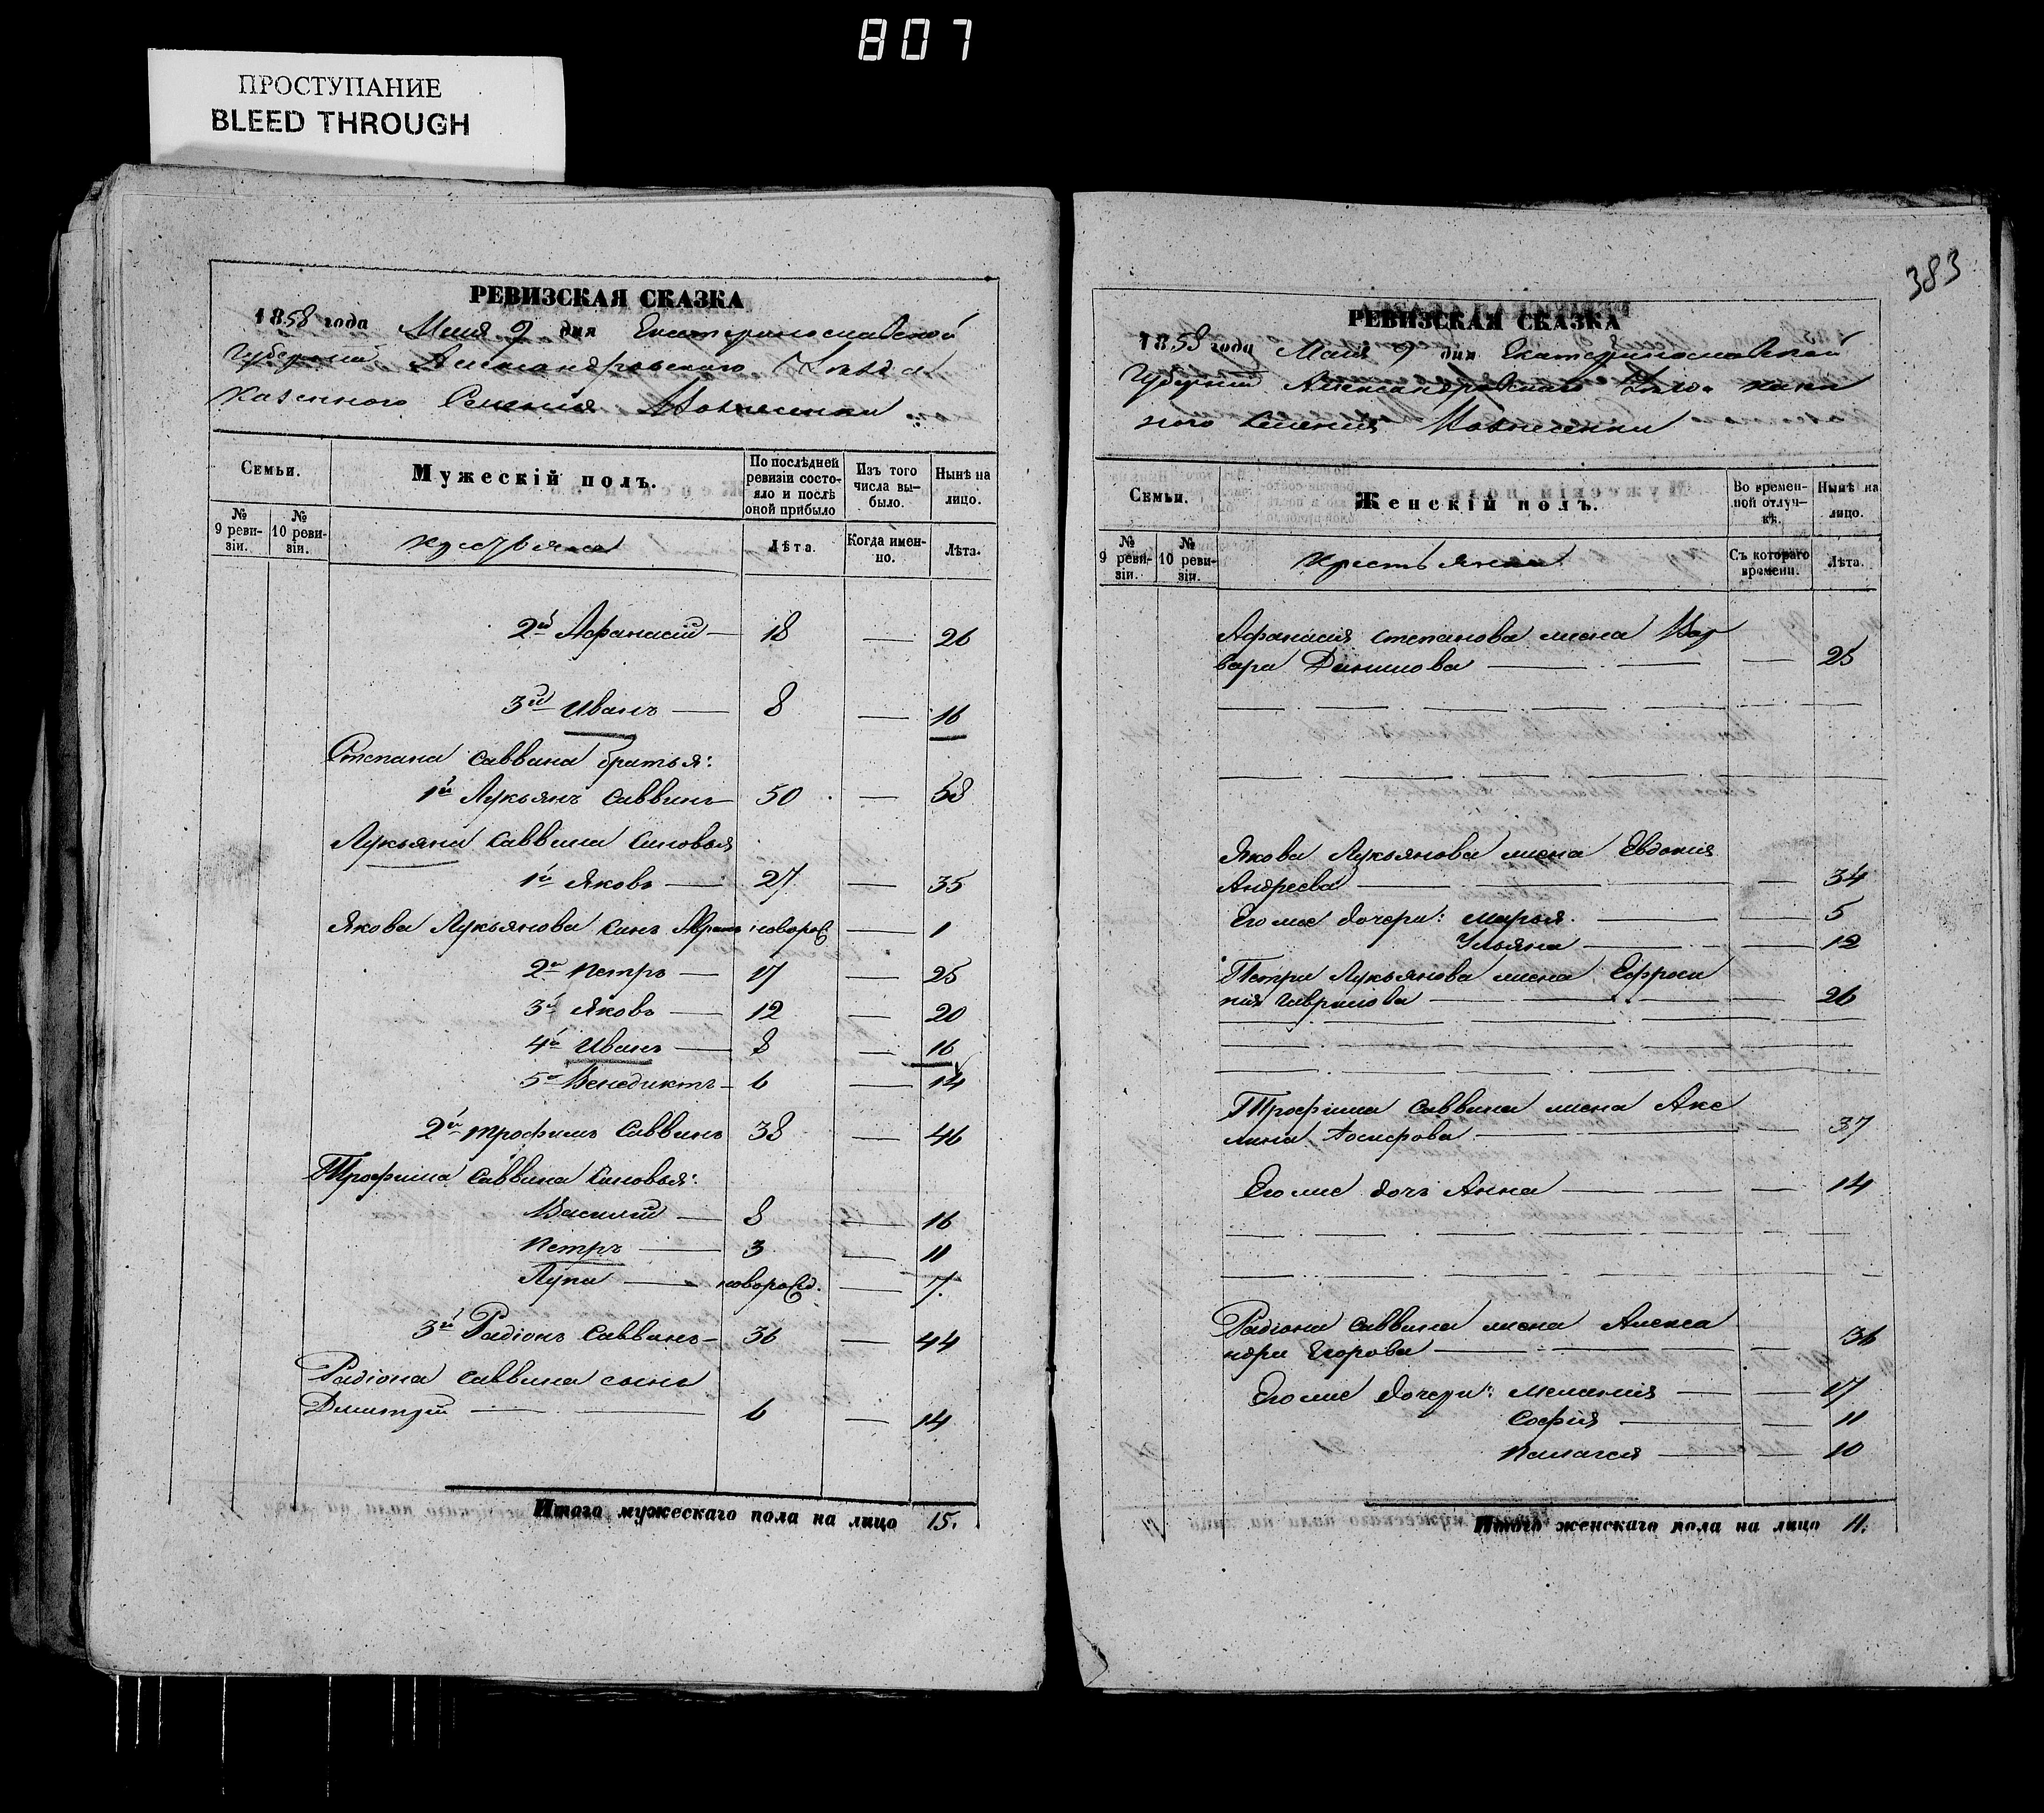 807
ПРОСТУПАНИЕ
BLEED THROUGH
РЕВИЗСКАЯ СКАЗКА
1858 года Мая 9 дня Екатеринославской
Губерніи Александровскаго Уѣзда
Казенного Селенія Вознесенки
Семьи.
Мужескій полъ.
По послѣдней ревизіи состояло и послѣ оной прибыло
Изъ того числа выбыло.
Нынѣ на лицо.
№ 9 ревизіи.
№ 10 ревизіи.
Крестьяне
Лѣта.
Когда именно.
Лѣта.
2й Афанасій — 18 — 26
3й Иванъ — 8 — 16
Степана Саввина братья:
1й Лукьянъ Саввинъ — 50 — 58
Лукьяна Саввина Сыновья
1й Яковъ — 27 — 35
Якова Лукьянова Сынъ новорож — 1
2й Петръ — 17 — 25
3й Яковъ — 12 — 20
4й Иванъ — 8 — 16
5й Венедиктъ — 6 — 14
2й Трофимъ Саввинъ 38 — 46
Трофима Саввина Сыновья:
Василій — 8 — 16
Петръ — 3 — 11
Лука — новорожд. — 7.
3й Радіонъ Саввинъ — 36 — 44
Радіона Саввина сынъ
Дмитрій — 6 — 14
Итого мужескаго пола на лицо 15.
383
РЕВИЗСКАЯ СКАЗКА
1858 года Мая 9 дня Екатеринославской
Губерніи Александровскаго казен
ного Селенія Вознесенки
Семьи.
Женскій полъ.
Во временной отлучкѣ.
Нынѣ на лицо.
№ 9 ревизіи.
№ 10 ревизіи.
Крестьянки
Съ котораго времени.
Лѣта.
Афанасія Степанова жена Вар
вара Данилова — — 25
Якова Лукьянова жена Евдокия
Андреева — — 34
Его же дочери: Марья — — 5
Ульяна — — 12
Петра Лукьянова жена Ефроси
нія Гаврилова — — 26
Трофима Саввина жена Аке
лина Іосифова — — 37
Его же дочь Анна — — 14
Радіона Саввина жена Алекса
ндра Егорова — — 36
Его же дочери: Меланія — — 17
Софія — — 11
Палагея — — 10
Итого женскаго пола на лицо 11.